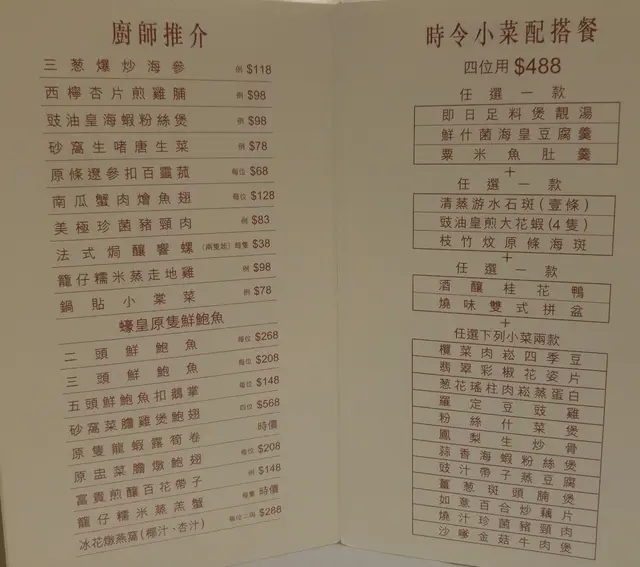 廚師推介
三葱爆炒海參 例 $118
西檸杏片煎雞脯 例 $98
豉油皇海蝦粉絲煲 例 $98
砂窩生啫唐生菜 例 $78
原條遼參扣百靈菰 每位 $68
南瓜蟹肉燴魚翅 每位 $128
美極珍菌豬頸肉 例 $83
法式焗釀響螺 (兩隻起) 每隻 $38
籠仔糯米蒸走地雞 例 $98
鍋貼小棠菜 例 $78
蠔皇原隻鮮鮑魚
二頭鮮鮑魚 每位 $268
三頭鮮鮑魚 每位 $208
五頭鮮鮑魚扣鵝掌 每位 $148
砂窩菜膽雞煲鮑翅 四位 $568
原隻龍蝦露筍卷 時價
原盅菜膽燉鮑翅 每位 $208
富貴煎釀百花帶子 例 $148
籠仔糯米蒸羔蟹 每隻 時價
冰花燉燕窩(椰汁·杏汁) 每位二両 $288
時令小菜配搭餐
四位用 $488
任選一款
即日足料煲靚湯
鮮什菌海皇豆腐羹
粟米魚肚羹
+
任選一款
清蒸游水石斑(壹條)
豉油皇煎大花蝦(4隻)
枝竹炆原條海斑
+
任選一款
酒釀桂花鴨
燒味雙式拼盆
+
任選下列小菜兩款
欖菜肉崧四季豆
翡翠彩椒花姿片
葱花瑤柱肉崧蒸蛋白
羅定豆豉雞
粉絲什菜煲
鳳梨生炒骨
蒜香海蝦粉絲煲
豉汁帶子蒸豆腐
薑葱斑頭腩煲
如意百合炒藕片
燒汁珍菌豬頸肉
沙嗲金菇牛肉煲